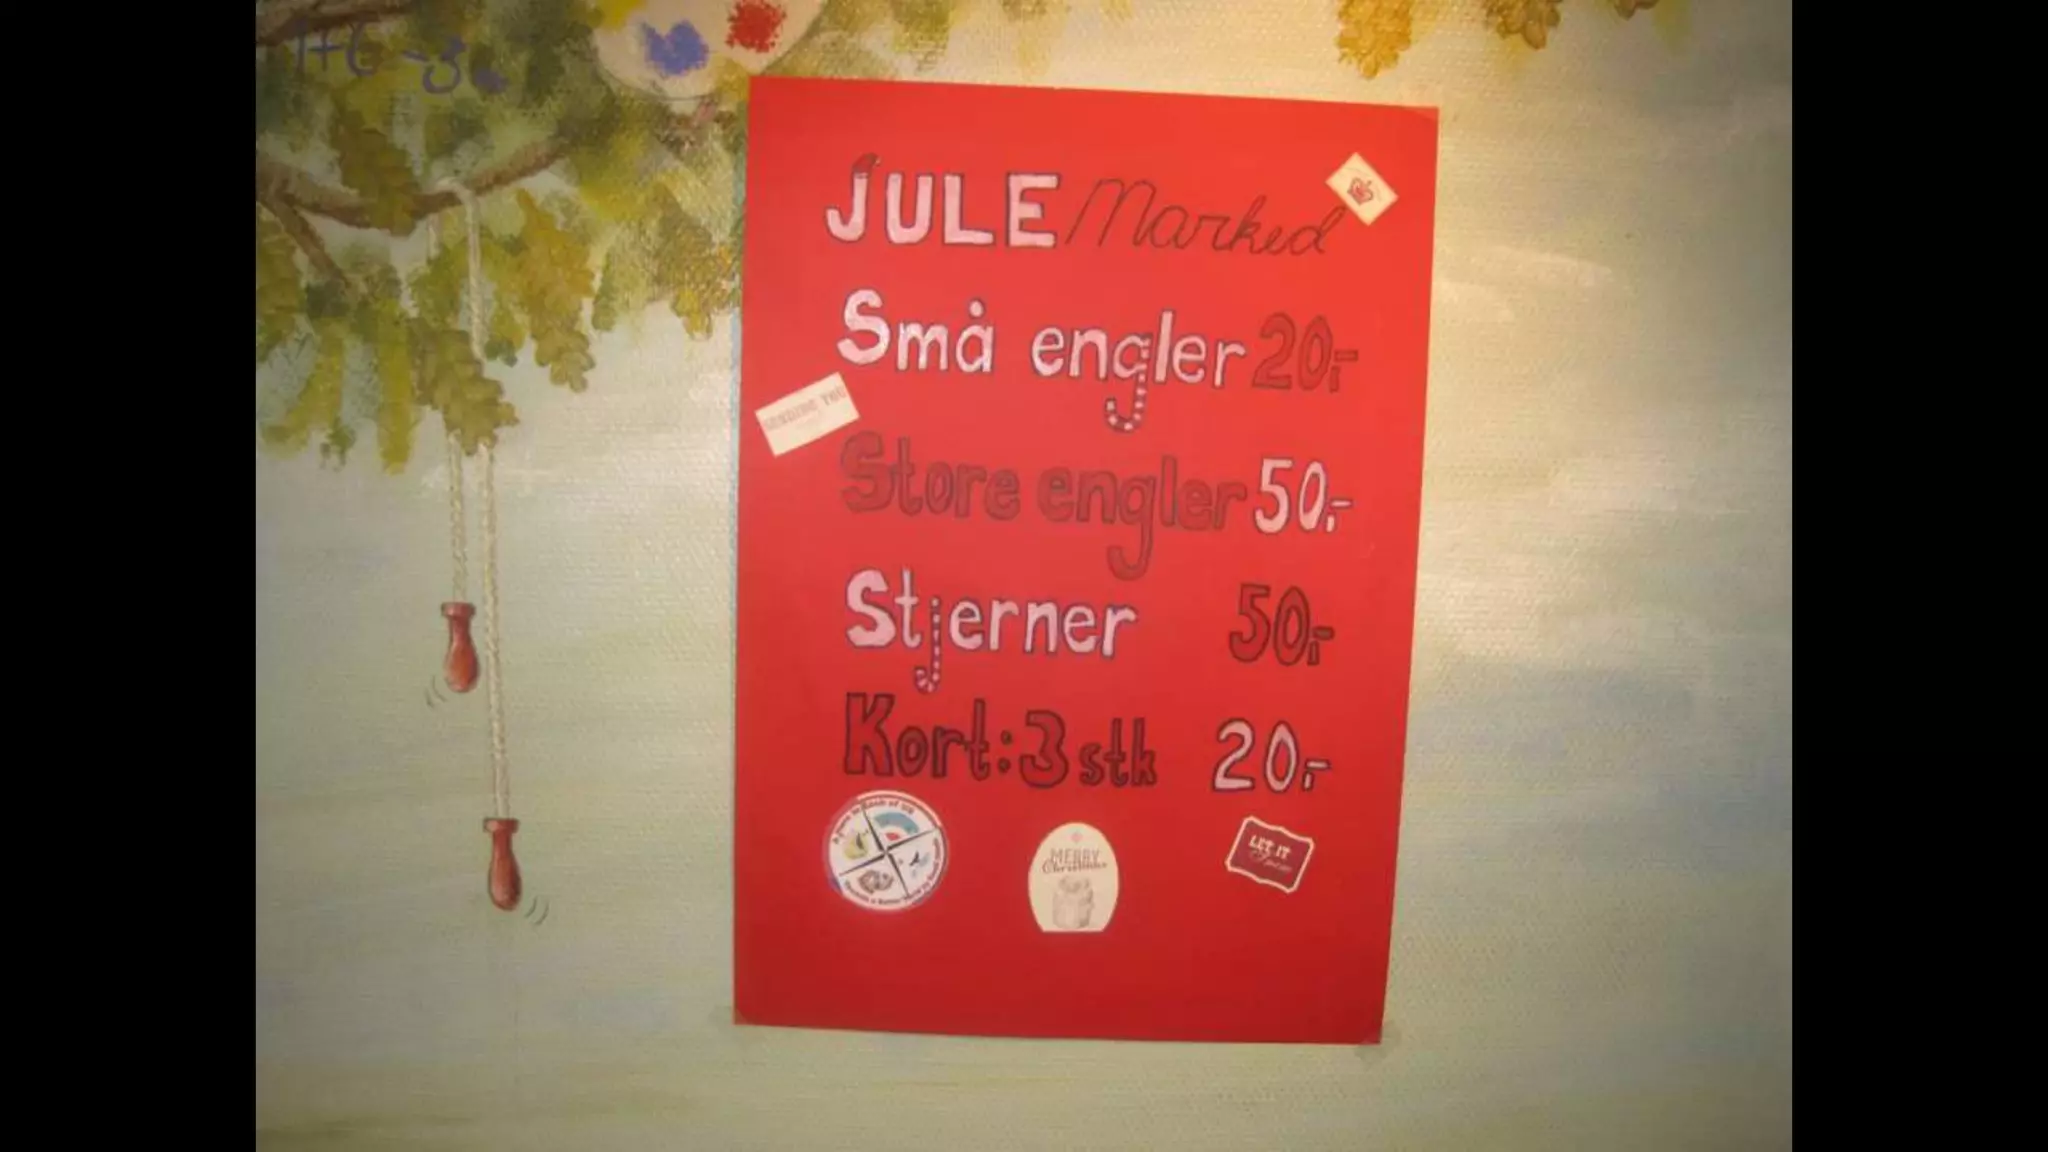 JULE Marked
Små engler 20,-
SENDING YOU
Store engler 50,-
Stjerner 50,-
Kort: 3 stk 20,-
MERRY
Christmas
LET IT
Snow